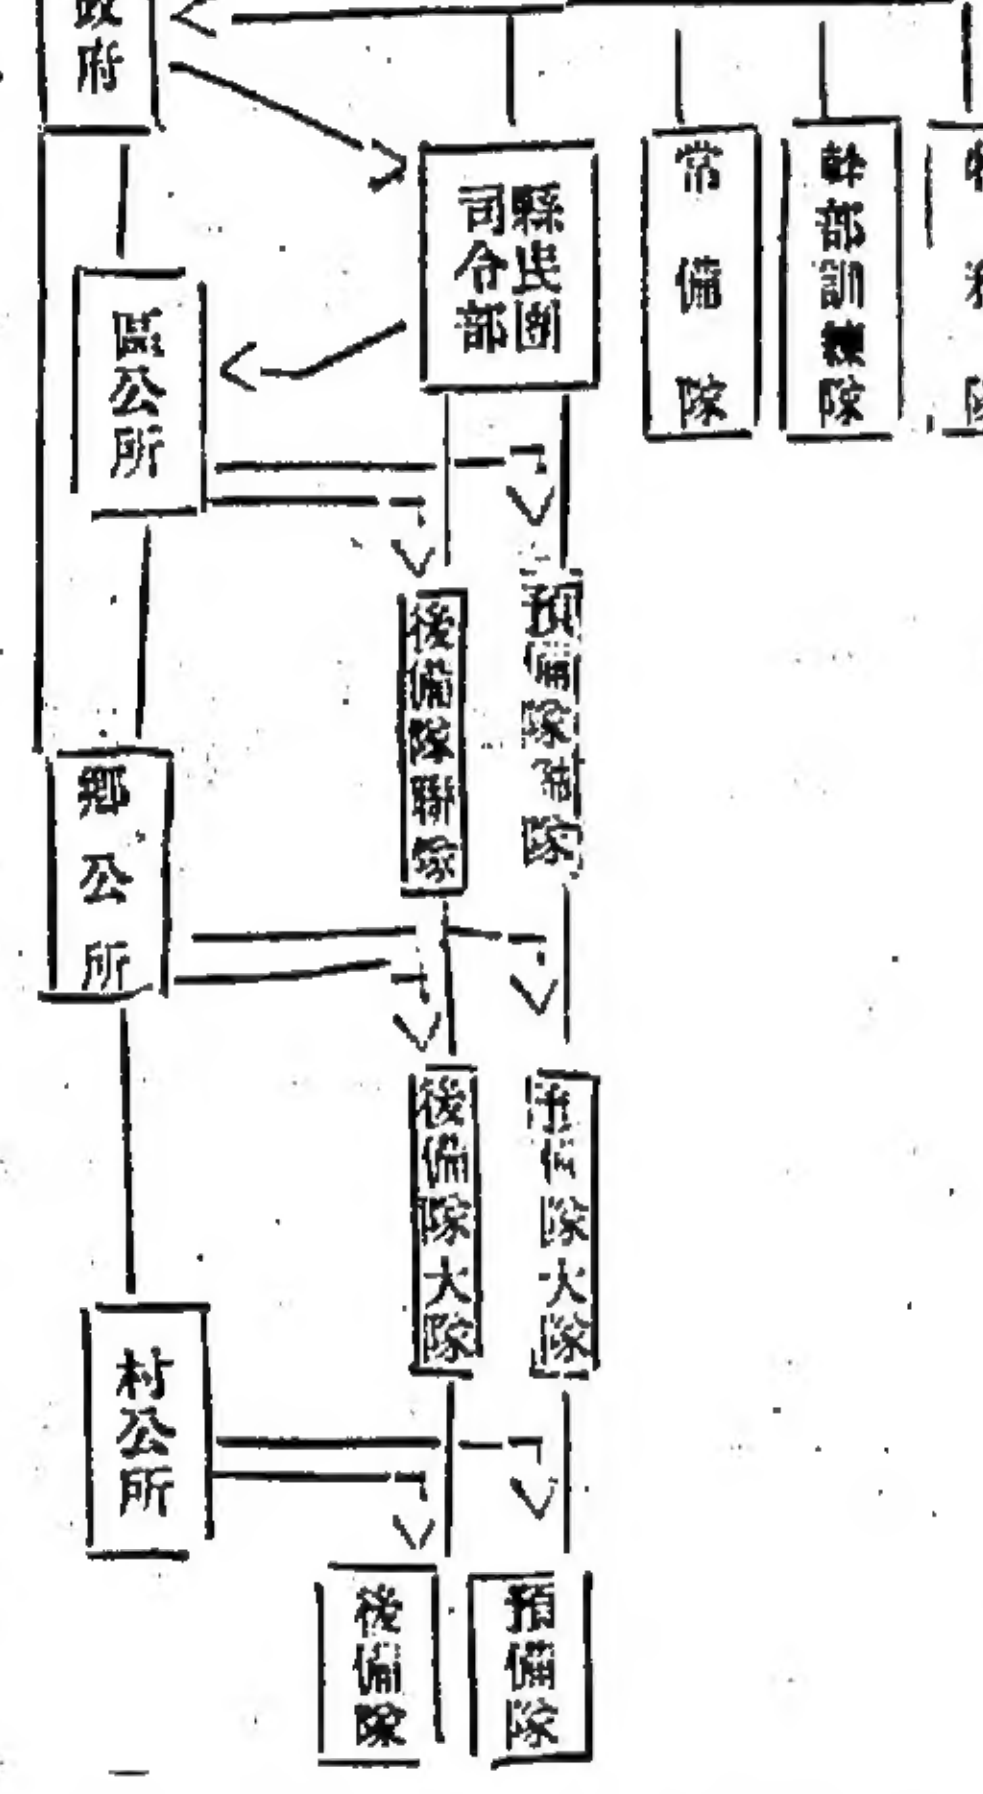 政府
縣民團
司令部
常備隊
幹部訓練隊
隊
區公所
後備隊聯隊
預備隊聯隊
鄉公所
後備隊大隊
預備隊大隊
村公所
後備隊
預備隊